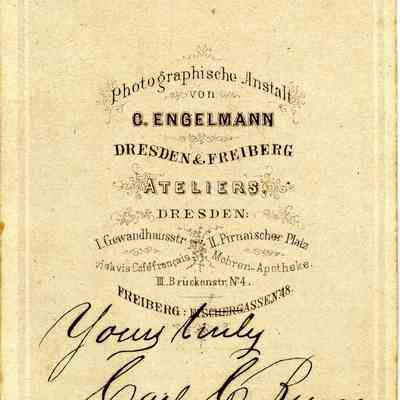 Photographische Anstalt
von
C. ENGELMANN
DRESDEN & FREIBERG
ATELIERS,
DRESDEN:
I. Gewandhausstr. II. Pirnaischer Platz
vis à vis Café français Mohren-Apotheke.
III. Brückenstr. Nº 4.
FREIBERG: FISCHERGASSE, Nº 48.
Yours truly
Carl C.